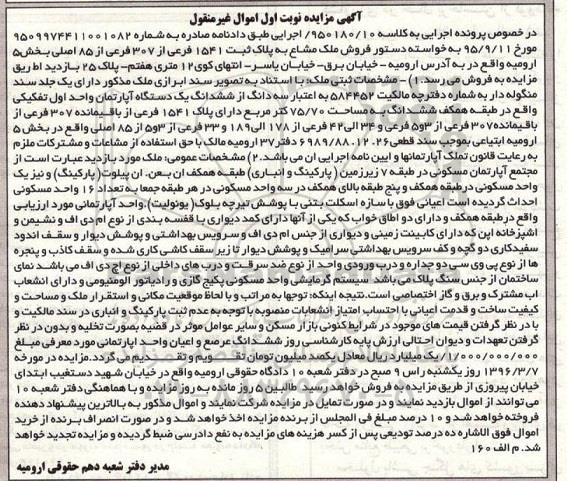 آگهی مزایده نوبت اول اموال غیرمنقول
در خصوص پرونده اجرایی به کلاسه ۹۵۰۱۸۰/۱۰ اجرایی طبق دادنامه صادره به شماره ۹۵۰۹۹۷۴۴۱۱۰۰۱۰۸۲
مورخ ۹۵/۹/۱۱ به خواسته دستور فروش ملک مشاع به پلاک ثبت ۱۵۴۱ فرعی از ۳۰۷ فرعی از ۸۵ اصلی بخش۵
ارومیه واقع در به آدرس ارومیه - خیابان برق- خیابان یاسر- انتهای کوی۱۲ متری هفتم- پلاک ۲۵ بازدید از طریق
مزایده به فروش می رسد. ۱) - مشخصات ثبتی ملک: با استناد به تصویر سند ابرازی ملک مذکور دارای یک جلد سند
منگوله دار به شماره دفترچه مالکیت ۵۸۴۴۵۲ به اعتبار سه دانگ از ششدانگ یک دستگاه آپارتمان واحد اول تفکیکی
واقع در طبقه همکف ششدانگ به مساحت ۷۵/۷۰ متر مربع دارای پلاک ۱۵۴۱ فرعی از باقیمانده ۳۰۷ فرعی از
باقیمانده۳۰۷ فرعی از ۵۳و فرعی و ۳۴ الی۴۲ فرعی از ۱۷۸ الی۱۸۹ و ۳۳ فرعی از ۵۳و ۸۵ اصلی واقع در بخش ۵
ارومیه ابتیاعی بموجب سند قطعی ۶۹۸۹/۸۸.۱۲.۲۶ دفتر۳۷ ارومیه مالک با حق استفاده از مشاعات و مشترکات ملزم
به رعایت قانون تملک آپارتمانها و ایین نامه اجرایی ان می باشد. ۲) مشخصات عمومی: ملک مورد بازدید عبارت است از
مجتمع آپارتمان مسکونی در طبقه ۷ زیرزمین ( پارکینگ و انباری) طبقه همکف ان بعن. ان پیلوت (پارکینگ) و نیز یک
واحد مسکونی درطبقه همکف و پنج طبقه بالای همکف در سه واحد مسکونی در هر طبقه جمعا به تعداد ۱۶ واحد مسکونی
احداث گردیده است اعیانی فوق با سازه اسکلت بتنی با پوشش تیرچه بلوک (یونولیت). واحد آپارتمانی مورد ارزیابی
واقع درطبقه همکف و دارای دو اطاق خواب که یکی از آنها دارای کمد دیواری با قفسه بندی از نوع ام دی اف و نشیمن و
اشپزخانه اپن که دارای کابینت زمینی و دیواری از جنس ام دی اف و سرویس بهداشتی و پوشش دیوار و سقف اندود
سفیدکاری دو گچه و کف سرویس بهداشتی سرامیک و پوشش دیوار تا زیر سقف کاشی کاری شده و سقف کاذب و پنجره
ها از نوع پی وی سی دو جداره و درب ورودی واحد از نوع ضد سرقت و درب های داخلی از نوع اچ دی اف می باشد نمای
ساختمان از جنس سنگ پلاک می باشد سیستم گرمایشی واحد مسکونی پکیج گازی و رادیاتور الومنیومی و دارای انشعاب
اب مشترک و برق و گاز اختصاصی است. نتیجه اینکه: توجها به مراتب و با لحاظ موقعیت مکانی و استقرار ملک و مساحت و
کیفیت ساخت و قدمت اعیانی با احتساب امتیاز انشعابات منصوبه با توجه به عدم ثبت پارکینگ و انباری در سند مالکیت و
با در نظر گرفتن قیمت های موجود در شرایط کنونی بازار مسکن و سایر عوامل موثر در قضیه بصورت تخلیه و بدون در نظر
گرفتن تعهدات و دیون احتمالی ارزش پایه کارشناسی روز ششدانگ عرصه و اعیان واحد اپارتمانی مورد معرفی مبلغ
۱/۰۰۰/۰۰۰/۰۰۰ یک میلیارد ریال معادل یکصد میلیون تومان تقویم و تقدیم می گردد. مزایده در مورخه
۱۳۹۶/۳/۷ روز یکشنبه راس ۹ صبح در دفتر شعبه ۱۰ دادگاه حقوقی ارومیه واقع در خیابان شهید دستغیب ابتدای
خیابان پیروزی از طریق مزایده به فروش خواهد رسید طالبین ۵ روز مانده به روز مزایده و با هماهنگی دفتر شعبه ۱۰
می توانند از اموال بازدید نمایند و در صورت تمایل در مزایده شرکت نمایند و اموال مذکور به بالاترین پیشنهاد دهنده
فروخته خواهد شد و ۱۰ درصد مبلغ فی المجلس از برنده مزایده اخذ خواهد شد و در صورت انصراف برنده از خرید
اموال فوق الاشاره ده درصد تودیعی پس از کسر هزینه های مزایده به نفع دادرسی ضبط گردیده و مزایده تجدید خواهد
شد. م الف ۱۶۰
مدیر دفتر شعبه دهم حقوقی ارومیه